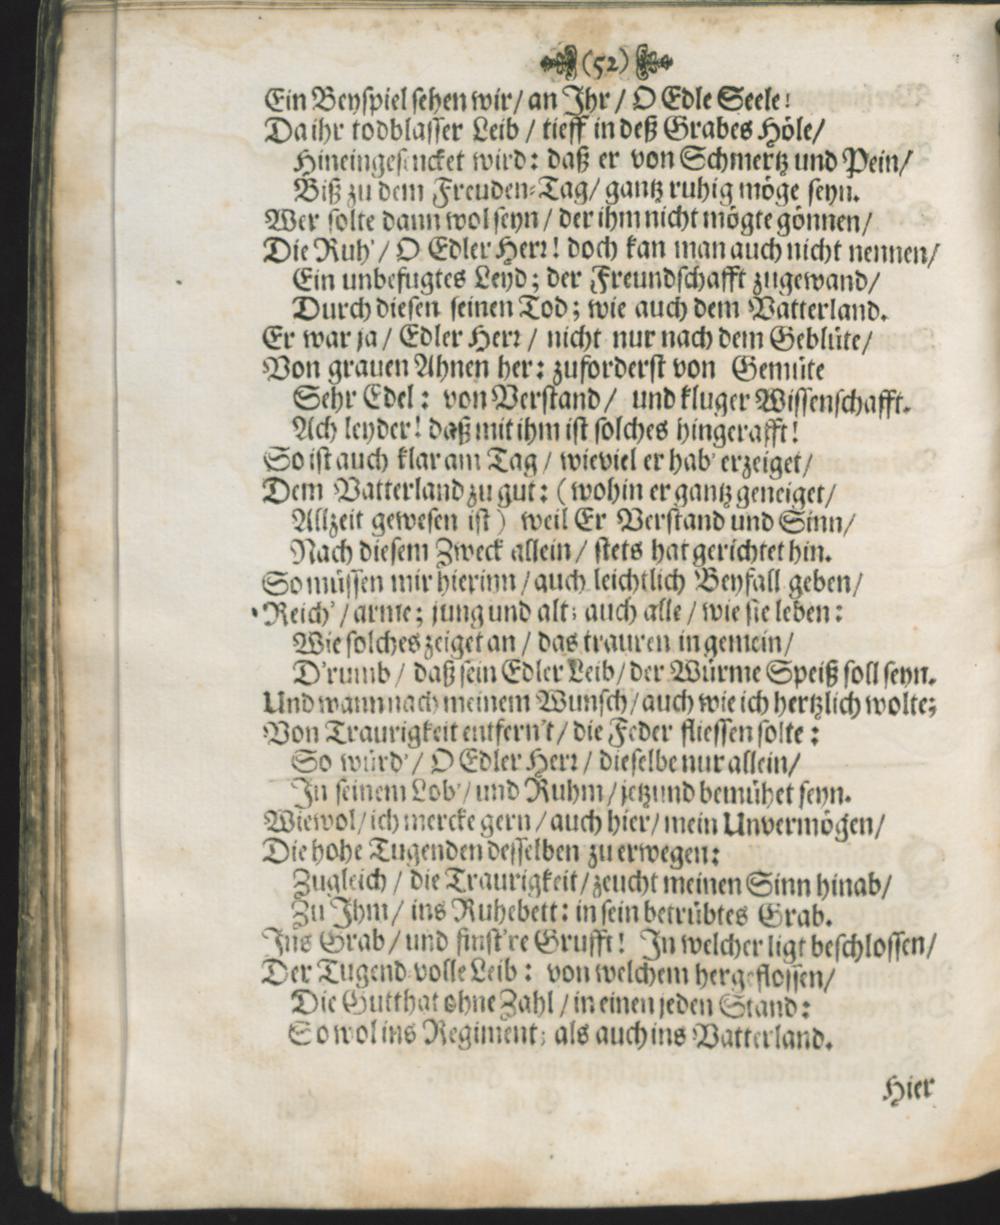 (52)
Ein Beyspiel sehen wir/ an Jhr / O Edle Seele!
Da ihr todblasser Leib / tieff in deß Grabes Höle/
Hineingesencket wird: daß er von Schmertz und Pein/
Biß zu dem Freuden-Tag/ gantz ruhig möge seyn.
Wer solte dann wol seyn / der ihm nicht mögte gönnen/
Die Ruh' / O Edler Herr! doch kan man auch nicht nennen/
Ein unbefugtes Leyd; der Freundschafft zugewand/
Durch diesen seinen Tod; wie auch dem Vatterland.
Er war ja / Edler Herr / nicht nur nach dem Geblüte/
Von grauen Ahnen her: zuforderst von Gemüte
Sehr Edel: von Verstand/ und kluger Wissenschafft.
Ach leyder! daß mit ihm ist solches hingerafft!
So ist auch klar am Tag / wieviel er hab' erzeiget/
Dem Vatterland zu gut: (wohin er gantz geneiget/
Allzeit gewesen ist) weil Er Verstand und Sinn/
Nach diesem Zweck allein / stets hat gerichtet hin.
So müssen mir hierinn / auch leichtlich Beyfall geben/
Reich' / arme; jung und alt; auch alle / wie sie leben:
Wie solches zeiget an / das trauren in gemein/
D'rumb / daß sein Edler Leib/ der Würme Speiß soll seyn.
Und wann nach meinem Wunsch/ auch wie ich hertzlich wolte;
Von Traurigkeit entfern't / die Feder fliessen solte:
So würd' / O Edler Herr / dieselbe nur allein/
Jn seinem Lob' / und Ruhm / jetzund bemühet seyn.
Wiewol/ ich mercke gern / auch hier/ mein Unvermögen/
Die hohe Tugenden desselben zu erwegen:
Zugleich / die Traurigkeit/ zeucht meinen Sinn hinab/
Zu Jhm/ ins Ruhebett: in sein betrübtes Grab.
Jns Grab/ und finst're Grufft! Jn welcher ligt beschlossen/
Der Tugend volle Leib: von welchem hergeflossen/
Die Gutthat ohne Zahl / in einen jeden Stand:
So wol ins Regiment; als auch ins Vatterland.
Hier